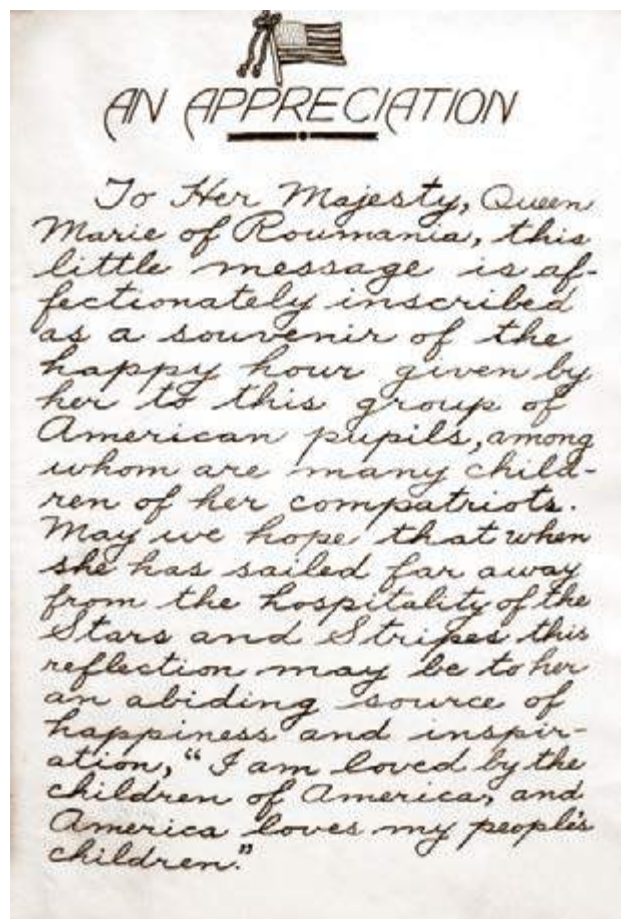 AN APPRECIATION
To Her Majesty, Queen
Marie of Roumania, this
little message is af-
fectionately inscribed
as a souvenir of the
happy hour given by
her to this group of
American pupils, among
whom are many child-
ren of her compatriots.
May we hope that when
she has sailed far away
from the hospitality of the
Stars and Stripes this
reflection may be to her
an abiding source of
happiness and inspir-
ation, "I am loved by the
children of America, and
America loves my people's
children."